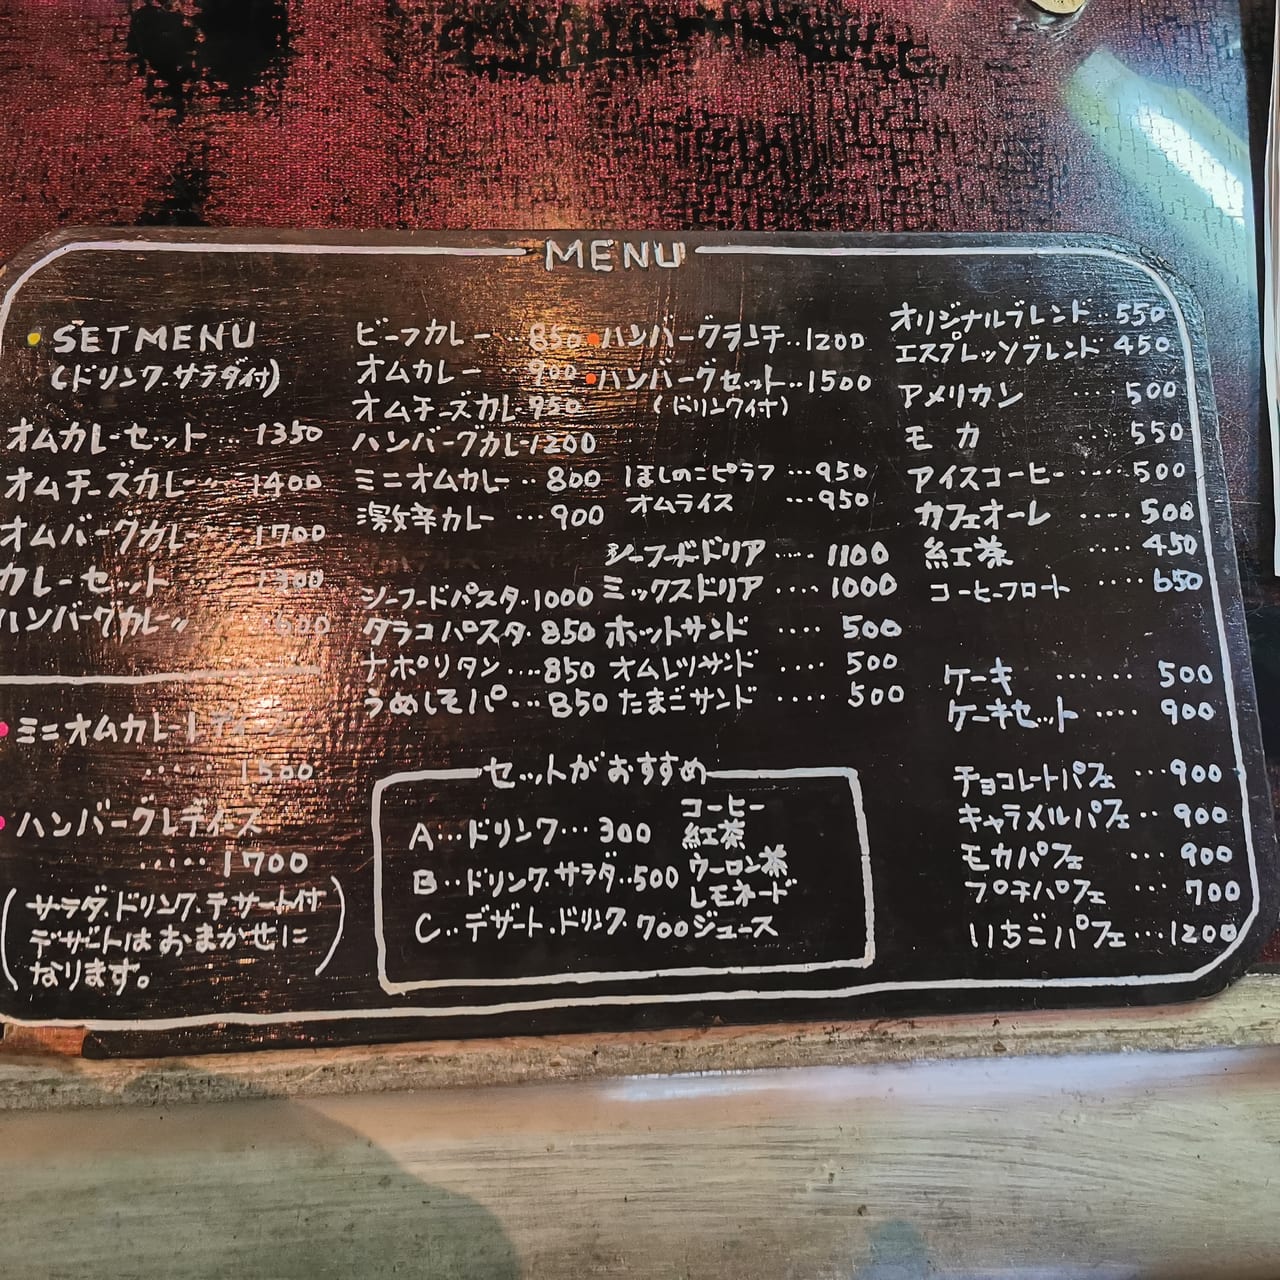 MENU
SETMENU
(ドリンク.サラダ付)
オムカレーセット … 1350
オムチーズカレー〃 1400
オムバーグカレー 1700
カレーセット 1300
ハンバーグカレー〃
ミニオムカレーレディース
…… 1500
ハンバーグレディース
…… 1700
(サラダ.ドリンク.デザート付
デザートはおまかせに
なります。)
ビーフカレー … 850
オムカレー … 900
オムチーズカレ 950
ハンバーグカレー1200
ミニオムカレー … 800
激辛カレー … 900
シーフードパスタ..1000
タラコパスタ. 850
ナポリタン … 850
うめしそパ … 850
ハンバーグランチ..1200
ハンバーグセット..1500
(ドリンク付)
ほしのこピラフ … 950
オムライス … 950
シーフードドリア …. 1100
ミックスドリア …. 1000
ホットサンド …. 500
オムレツサンド …. 500
たまごサンド …. 500
セットがおすすめ
A…ドリンク… 300
B..ドリンク.サラダ..500
C..デザート.ドリンク. 700
コーヒー
紅茶
ウーロン茶
レモネード
ジュース
オリジナルブレンド..550
エスプレッソブレンド 450
アメリカン …. 500
モカ …. 550
アイスコーヒー ….. 500
カフェオーレ …. 500
紅茶 …. 450
コーヒーフロート …. 650
ケーキ …… 500
ケーキセット …. 900
チョコレートパフェ … 900
キャラメルパフェ.. 900
モカパフェ … 900
プチパフェ … 700
いちごパフェ … 1200